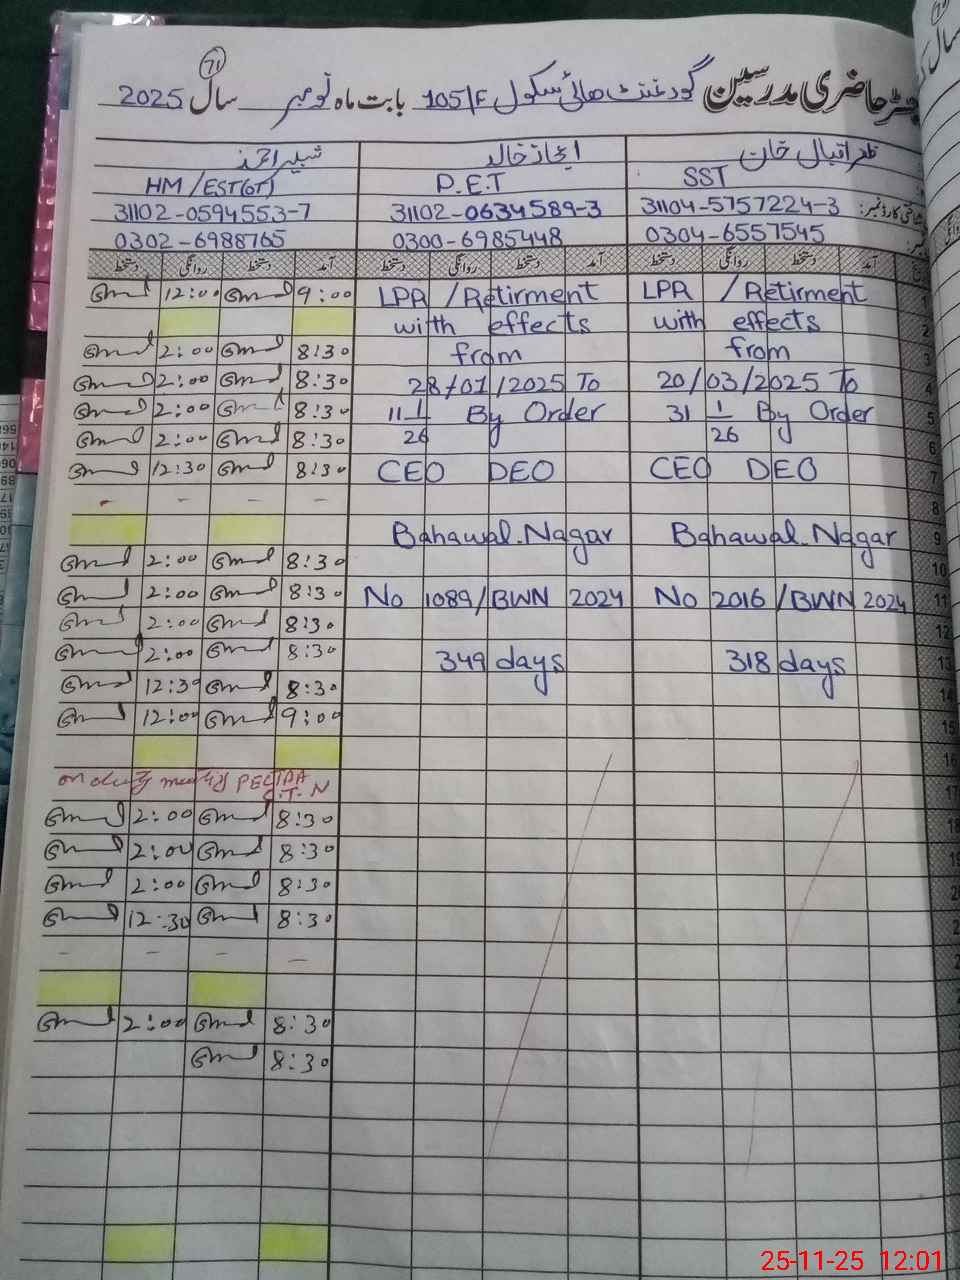 71
رجسٹر حاضری مدرسین گورنمنٹ ھائی سکول 105/F بابت ماہ نومبر سال 2025
ظفر اقبال خان اعجاز خالد شبیر احمد
SST P.E.T HM/EST(GT)
شناختی کارڈ نمبر: 31104-5757224-3 31102-0634589-3 31102-0594553-7
0304-6557545 0300-6985448 0302-6988765
آمد دستخط روانگی دستخط آمد دستخط روانگی دستخط آمد دستخط روانگی دستخط
LPR / Retirment LPR / Retirment 9:00 12:00
2 with effects with effects
3 from from 8:30 2:00
4 20/03/2025 To 28/01/2025 To 8:30 2:00
5 31 1/26 By Order 11 1/26 By Order 8:30 2:00
6 8:30 2:00
7 CEO DEO CEO DEO 8:30 12:30
8 - - - -
9 Bahawal.Nagar Bahawal.Nagar
10 8:30 2:00
11 No 2016/BWN 2024 No 1089/BWN 2024 8:30 2:00
12 8:30 2:00
13 318 days 349 days 8:30 2:00
14 8:30 12:39
15 9:00 12:00
16
17 on duty meeting
18 8:30 2:00
19 8:30 2:00
8:30 2:00
8:30 12:30
- - - -
8:30 2:00
8:30
25-11-25 12:01